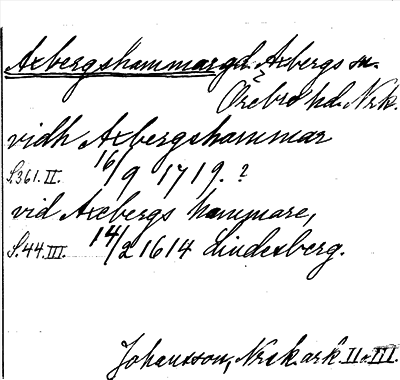 Axbergshammar gd. Axbergs sn.
Örebro hd. Nrk.
vidh Axbergshammar
S.361.II. 16/9 1719. ?
vid Axebergs hammare,
S.44.III. 14/2 1614 Lindesberg.
Johansson, Nrsk. ark II o. III.